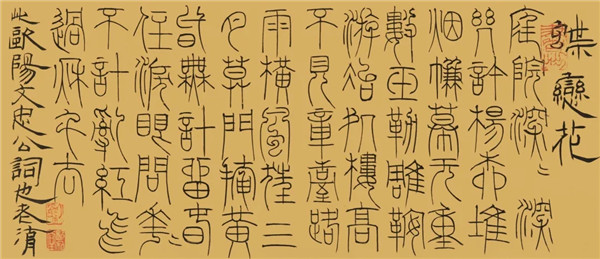 蝶戀花
庭院深〻深
幾許楊柳堆
烟簾幕无重
數玉勒雕鞍
游冶処樓高
不見章臺路
雨橫風狂三
月暮門掩黃
昏無計留春
住淚眼問花〻
不語亂紅飛
過秋千去
此歐陽文忠公詞也